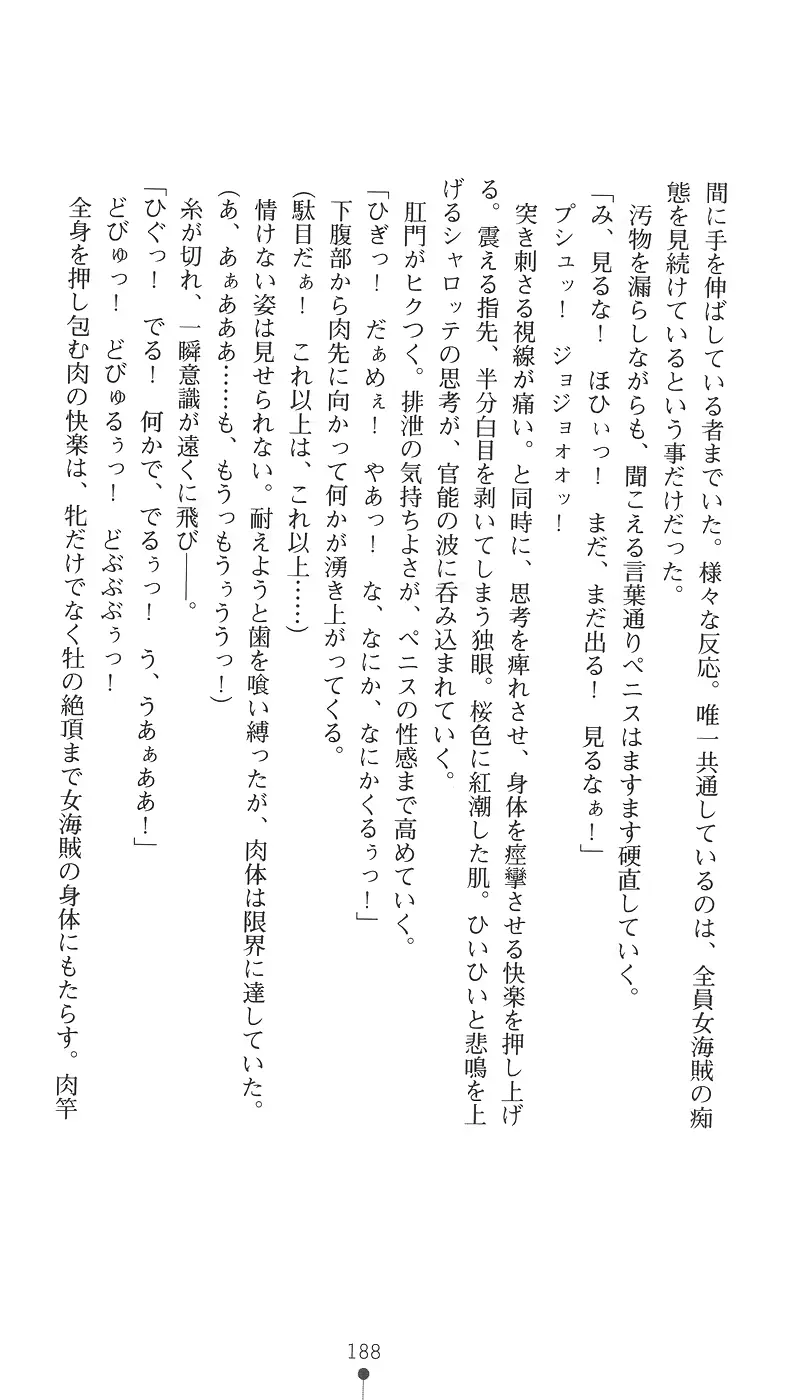 間に手を伸ばしている者までいた。様々な反応。唯一共通しているのは、全員女海賊の痴
態を見続けているという事だけだった。
　汚物を漏らしながらも、聞こえる言葉通りペニスはますます硬直していく。
「み、見るな！　ほひぃっ！　まだ、まだ出る！　見るなぁ！」
　プシュッ！　ジョジョォォッ！
　突き刺さる視線が痛い。と同時に、思考を痺れさせ、身体を痙攣させる快楽を押し上げ
る。震える指先、半分白目を剥いてしまう独眼。桜色に紅潮した肌。ひいひいと悲鳴を上
げるシャロッテの思考が、官能の波に呑み込まれていく。
　肛門がヒクつく。排泄の気持ちよさが、ペニスの性感まで高めていく。
「ひぎっ！　だぁめぇ！　やあっ！　な、なにか、なにかくるぅっ！」
　下腹部から肉先に向かって何かが湧き上がってくる。
（駄目だぁ！　これ以上は、これ以上……）
　情けない姿は見せられない。耐えようと歯を喰い縛ったが、肉体は限界に達していた。
（あ、あぁあああ……も、もうっもうぅううっ！）
　糸が切れ、一瞬意識が遠くに飛び――。
「ひぐっ！　でる！　何かで、でるぅっ！　う、うあぁああ！」
　どびゅっ！　どびゅるぅっ！　どぶぶぅっ！
　全身を押し包む肉の快楽は、牝だけでなく牡の絶頂まで女海賊の身体にもたらす。肉竿
188